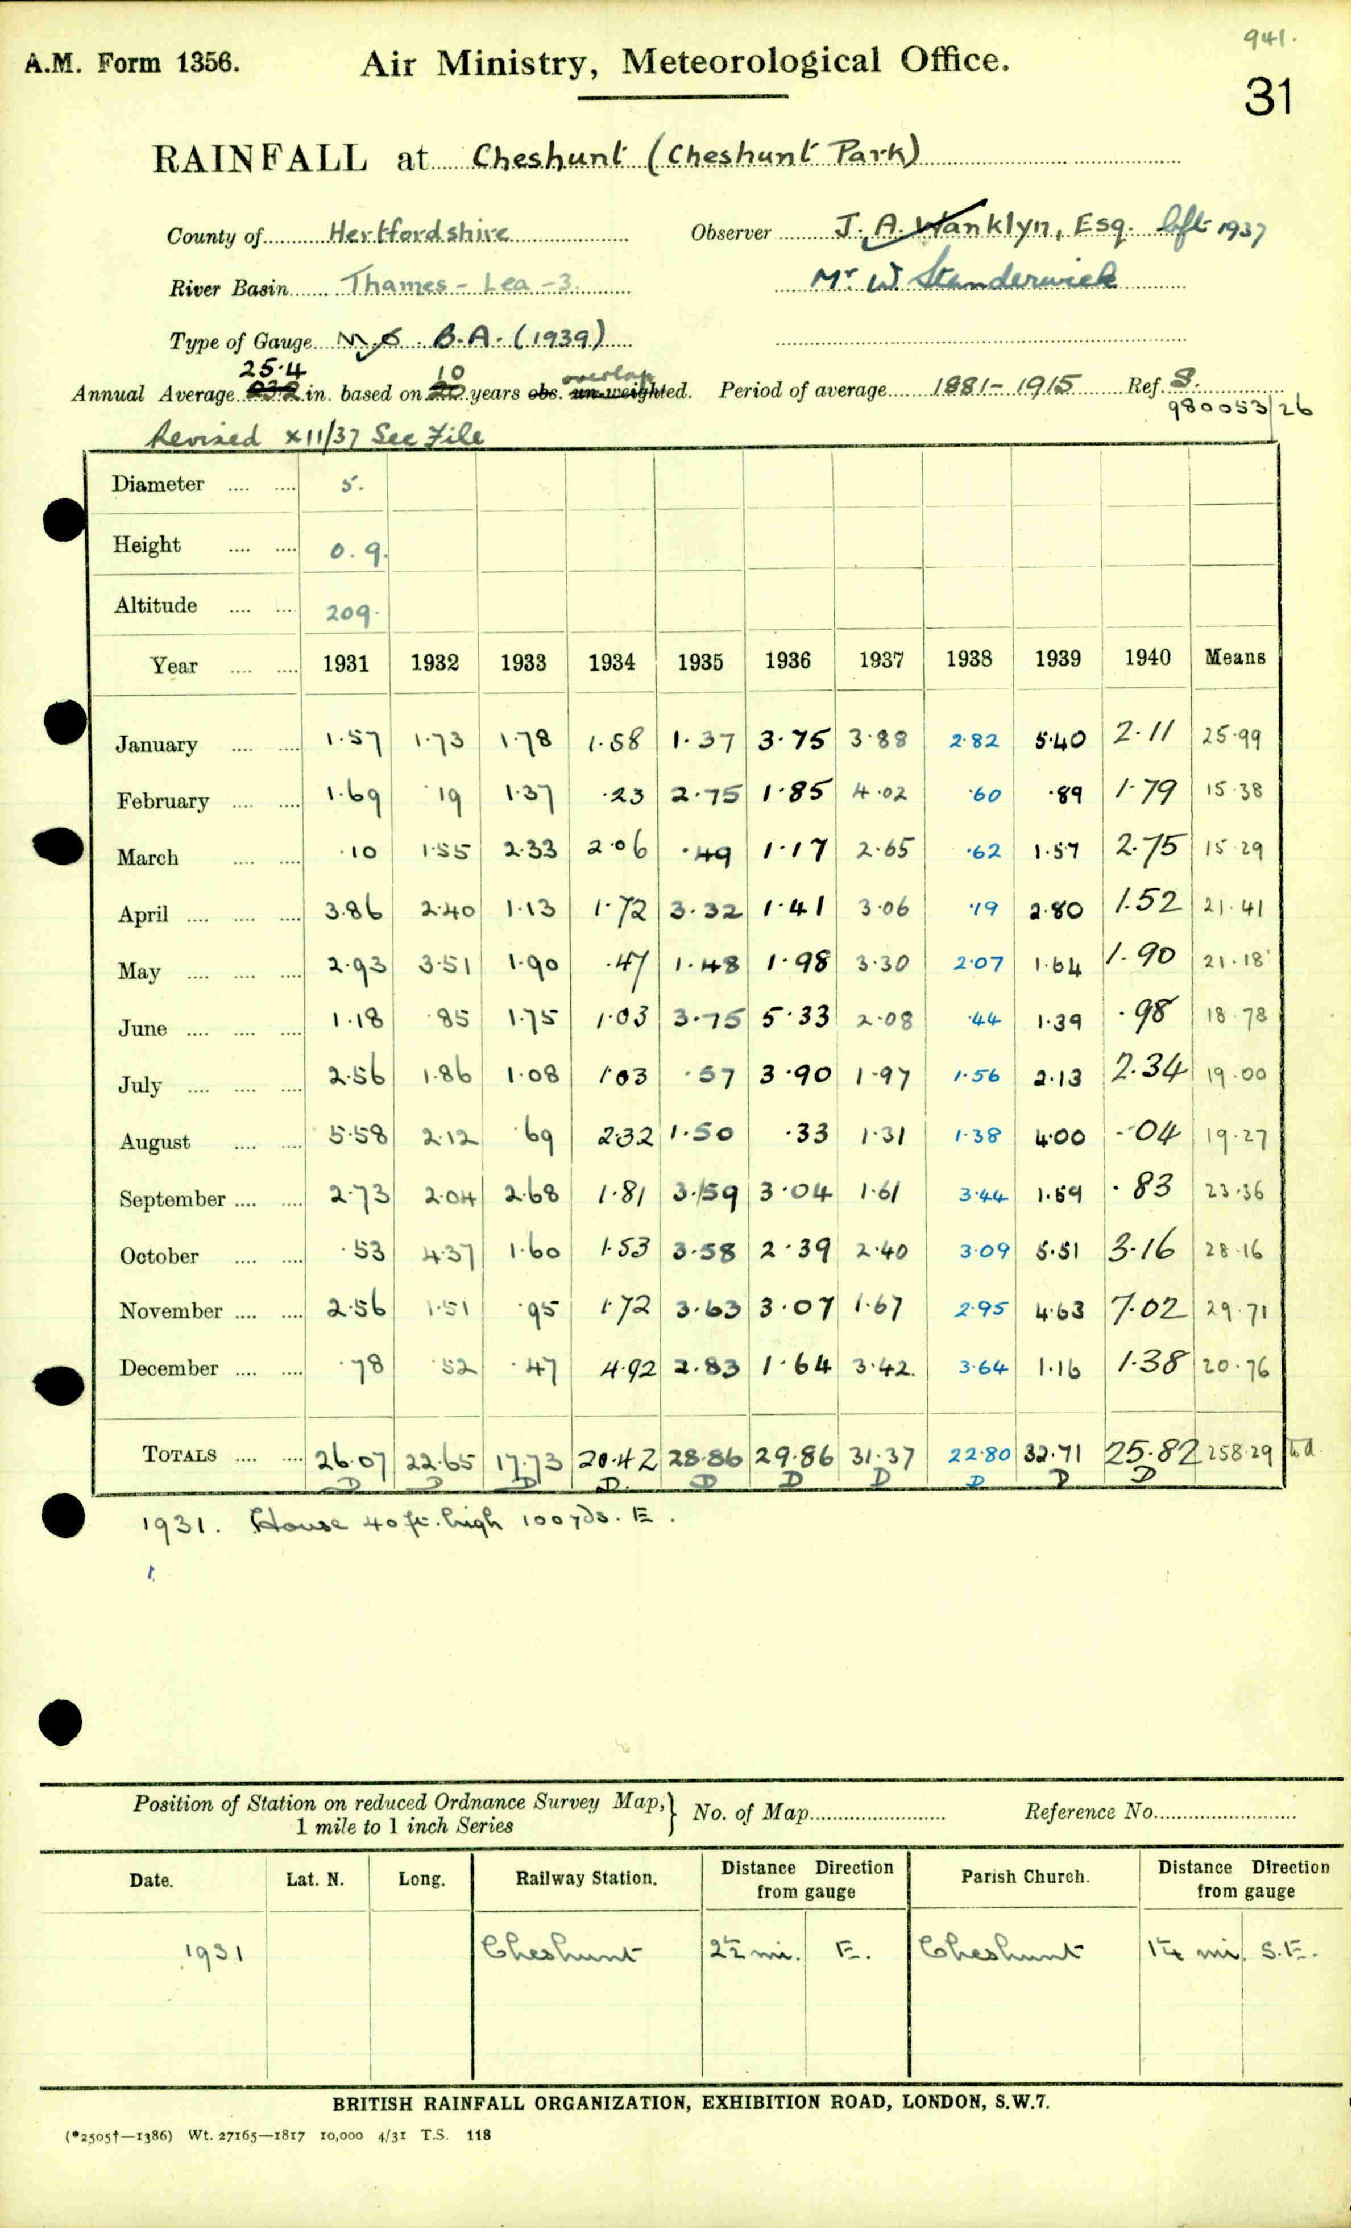 941.
A.M. Form 1356. Air Ministry, Meteorological Office.
31
RAINFALL at Cheshunt (Cheshunt Park)
County of Hertfordshire Observer J. A. Wanklyn, Esq. left 1937
River Basin Thames - Lea - 3. Mr W Standerwick
Type of Gauge M.O. B.A. (1939)
25.4 10 overlap
Annual Average in. based on 20 years obs. un-weighted. Period of average 1881-1915 Ref. S.
980053/26
Revised XII/37 See File
Diameter 5.
Height 0.9.
Altitude 209.
Year 1931 1932 1933 1934 1935 1936 1937 1938 1939 1940 Means
January 1.57 1.73 1.78 1.58 1.37 3.75 3.88 2.82 5.40 2.11 25.99
February 1.69 .19 1.37 .23 2.75 1.85 4.02 .60 .89 1.79 15.38
March .10 1.55 2.33 2.06 .49 1.17 2.65 .62 1.57 2.75 15.29
April 3.86 2.40 1.13 1.72 3.32 1.41 3.06 .19 2.80 1.52 21.41
May 2.93 3.51 1.90 .47 1.48 1.98 3.30 2.07 1.64 1.90 21.18
June 1.18 .85 1.75 1.03 3.75 5.33 2.08 .44 1.39 .98 18.78
July 2.56 1.86 1.08 1.03 .57 3.90 1.97 1.56 2.13 2.34 19.00
August 5.58 2.12 .69 2.32 1.50 .33 1.31 1.38 4.00 .04 19.27
September 2.73 2.04 2.68 1.81 3.59 3.04 1.61 3.44 1.59 .83 23.36
October .53 4.37 1.60 1.53 3.58 2.39 2.40 3.09 5.51 3.16 28.16
November 2.56 1.51 .95 1.72 3.63 3.07 1.67 2.95 4.63 7.02 29.71
December .78 .52 .47 4.92 2.83 1.64 3.42 3.64 1.16 1.38 20.76
TOTALS 26.07 22.65 17.73 20.42 28.86 29.86 31.37 22.80 32.71 25.82 258.29
D D D D. D D D D D D
1931. House 40 ft. high 100 yds. E.
Position of Station on reduced Ordnance Survey Map, } No. of Map Reference No.
1 mile to 1 inch Series
Date. Lat. N. Long. Railway Station. Distance Direction from gauge Parish Church. Distance Direction from gauge
1931 Cheshunt 2½ mi. E. Cheshunt 1¼ mi. S.E.
BRITISH RAINFALL ORGANIZATION, EXHIBITION ROAD, LONDON, S.W.7.
(*2505†—1386) Wt. 27165—1817 10,000 4/31 T.S. 118